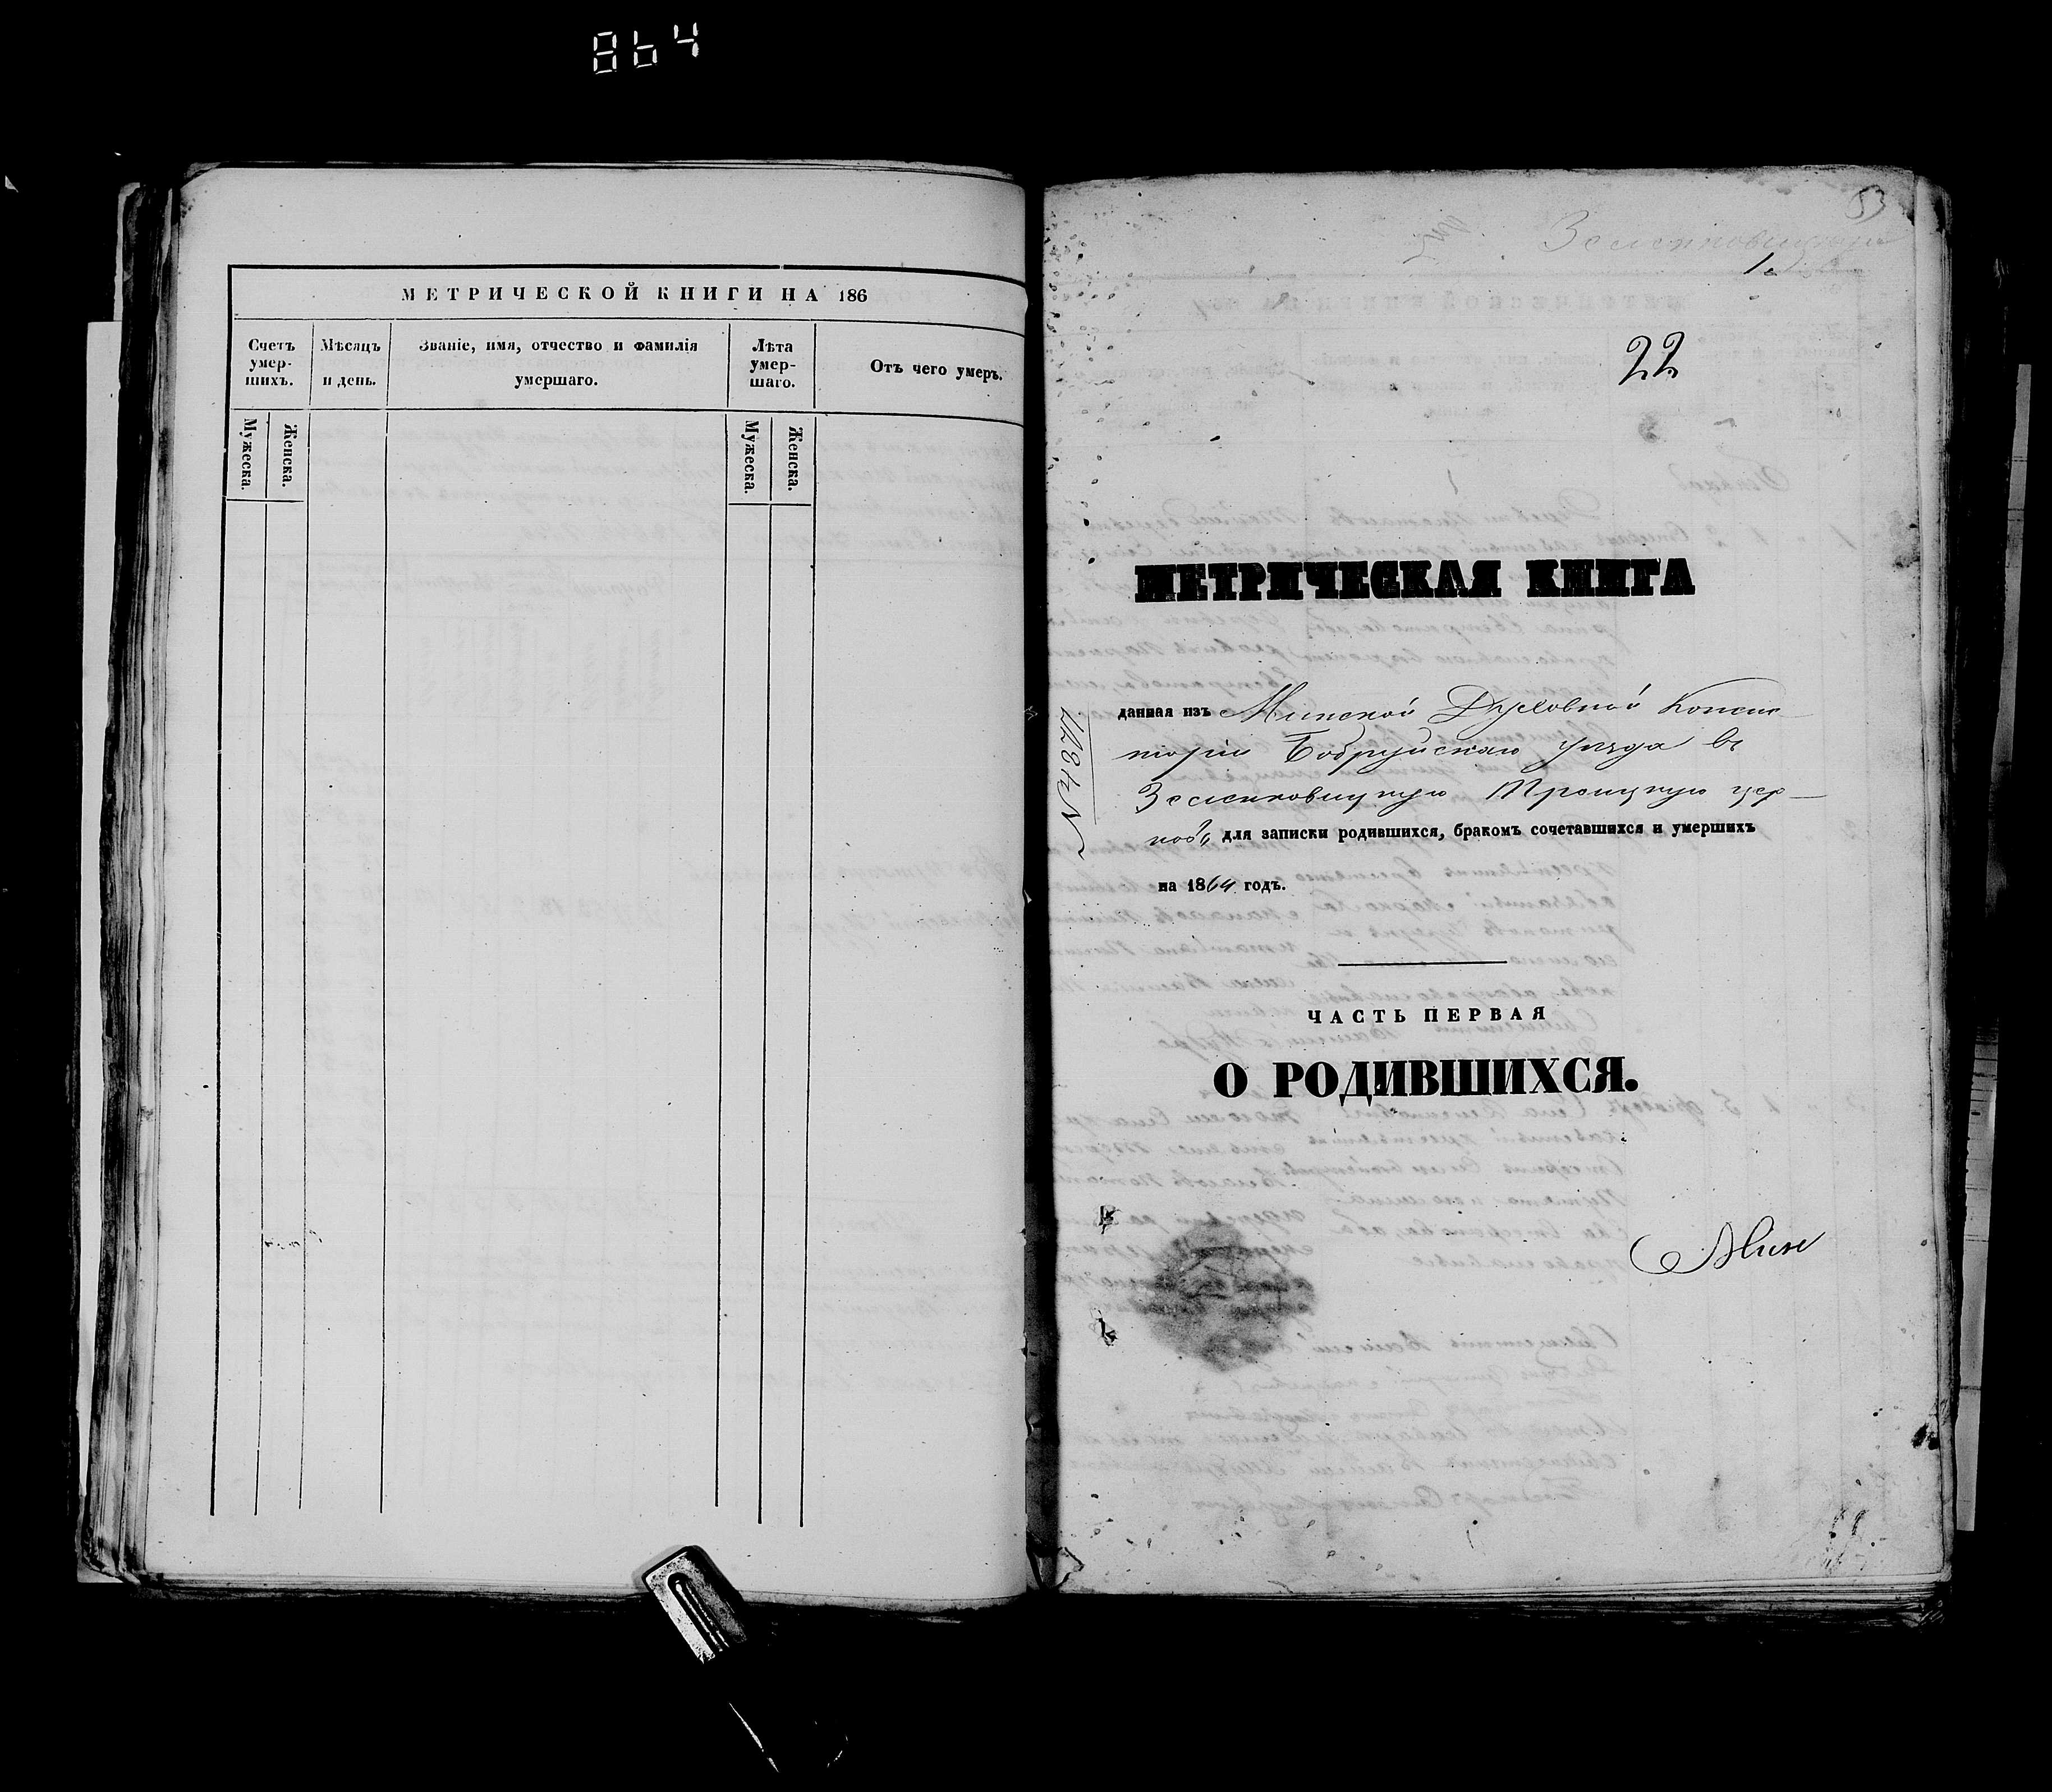 864
МЕТРИЧЕСКОЙ КНИГИ НА 186
Счетъ умер-шихъ.
Мужеска.
Женска.
Мѣсяцъ и день.
Званіе, имя, отчество и фамилія
умершаго.
Лѣта умер-шаго.
Мужеска.
Женска.
Отъ чего умеръ.
53
1.
22
МЕТРИЧЕСКАЯ КНИГА
данная изъ Минской Духовной Консис
торіи Бобруйскаго уѣзда въ
Зеленковицкую Троицкую цер-
ковь, для записки родившихся, бракомъ сочетавшихся и умершихъ
на 1864 годъ.
ЧАСТЬ ПЕРВАЯ
О РОДИВШИХСЯ.